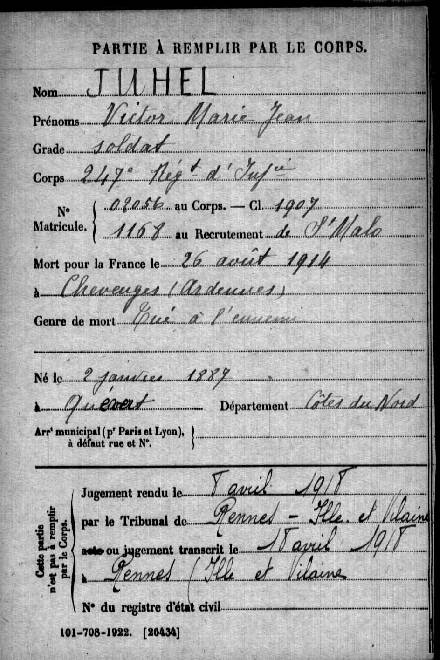 PARTIE À REMPLIR PAR LE CORPS.
Nom JUHEL
Prénoms Victor Marie Jean
Grade soldat
Corps 247e Régt d'Infie
N° Matricule. { 02056 au Corps. — Cl. 1907
1168 au Recrutement de St Malo
Mort pour la France le 26 août 1914
à Cheveuges (Ardennes)
Genre de mort Tué à l'ennemi
Né le 2 janvier 1887
à Quévert Département Côtes du Nord
Arrt municipal (pr Paris et Lyon), à défaut rue et N°. }
Cette partie n'est pas à remplir par le Corps.
Jugement rendu le 8 avril 1918
par le Tribunal de Rennes - Ille et Vilaine
acte ou jugement transcrit le 18 avril 1918
à Rennes (Ille et Vilaine
N° du registre d'état civil
101-708-1922. [26434]